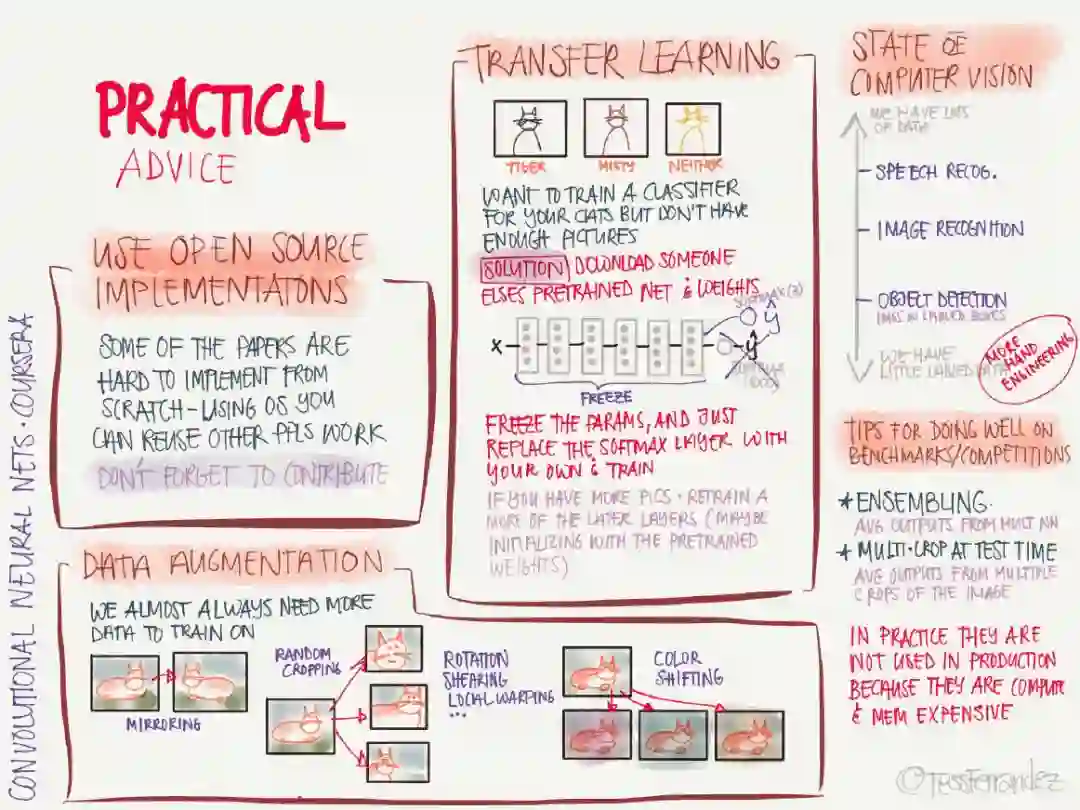 PRACTICAL
ADVICE
USE OPEN SOURCE
IMPLEMENTATONS
SOME OF THE PAPERS ARE
HARD TO IMPLEMENT FROM
SCRATCH - USING OS YOU
CAN REUSE OTHER PPLS WORK
DON'T FORGET TO CONTRIBUTE
CONVOLUTIONAL NEURAL NETS · COURSERA
DATA AUGMENTATION
WE ALMOST ALWAYS NEED MORE
DATA TO TRAIN ON
MIRRORING
RANDOM
CROPPING
ROTATION
SHEARING
LOCAL WARPING
...
COLOR
SHIFTING
TRANSFER LEARNING
TIGER
MISTY
NEITHER
WANT TO TRAIN A CLASSIFIER
FOR YOUR CATS BUT DON'T HAVE
ENOUGH PICTURES
SOLUTION DOWNLOAD SOMEONE
ELSES PRETRAINED NET & WEIGHTS
SOFTMAX (3)
X
ŷ
ŷ
SOFTMAX
FREEZE
FREEZE THE PARAMS, AND JUST
REPLACE THE SOFTMAX LAYER WITH
YOUR OWN & TRAIN
IF YOU HAVE MORE PICS - RETRAIN A
MORE OF THE LATER LAYERS (MAYBE
INITIALIZING WITH THE PRETRAINED
WEIGHTS)
STATE OF
COMPUTER VISION
WE HAVE LOTS
OF DATA
SPEECH RECOG.
IMAGE RECOGNITION
OBJECT DETECTION
LABELED BOXES
WE HAVE
LITTLE LABELED DATA
MORE
HAND
ENGINEERING
TIPS FOR DOING WELL ON
BENCHMARKS/COMPETITIONS
* ENSEMBLING.
AVG OUTPUTS FROM MULT NN
* MULTI-CROP AT TEST TIME
AVG OUTPUTS FROM MULTIPLE
CROPS OF THE IMAGE
IN PRACTICE THEY ARE
NOT USED IN PRODUCTION
BECAUSE THEY ARE COMPUTE
& MEM EXPENSIVE
©TessFerrandez